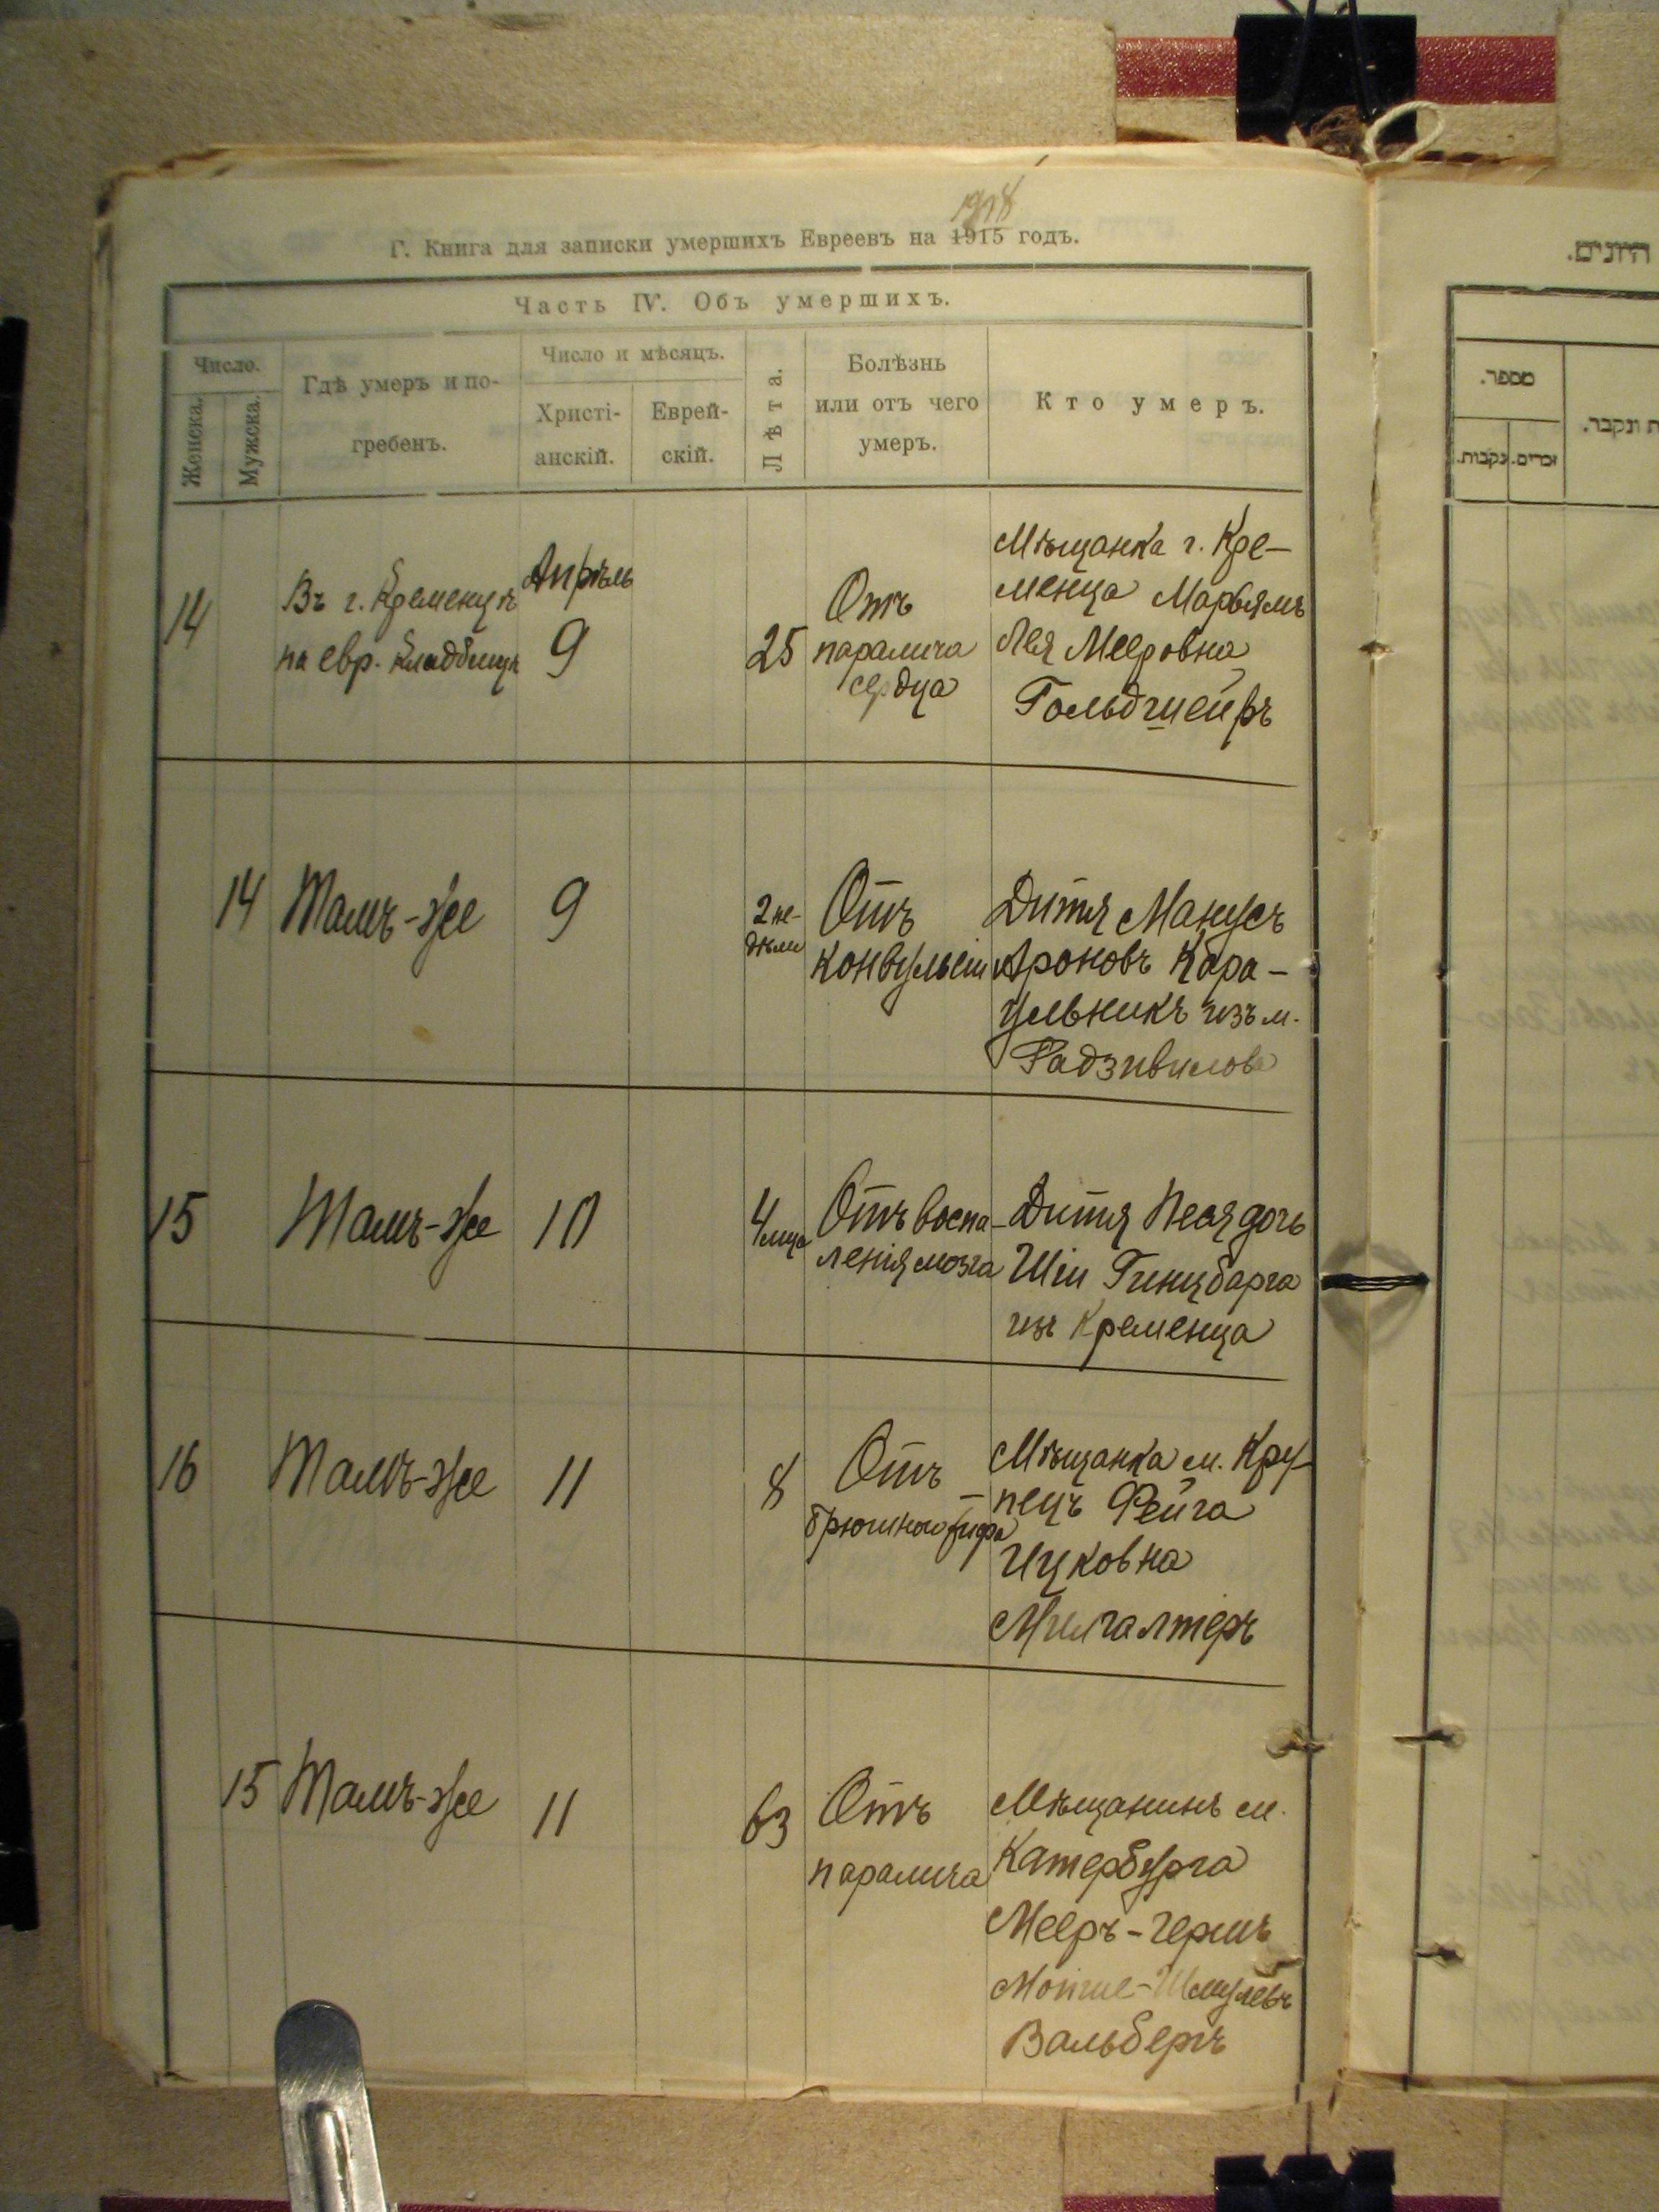 1918
Г. Книга для записки умершихъ Евреевъ на 1915 годъ.
Часть IV. Объ умершихъ.
Число.
Женска.
Мужска.
Гдѣ умеръ и по-
гребенъ.
Число и мѣсяцъ.
Христі-
анскій.
Еврей-
скій.
Лѣта.
Болѣзнь
или отъ чего
умеръ.
Кто умеръ.
14
Въ г. Кременцѣ
на евр. кладбищѣ
Апрѣль
9
25
Отъ
паралича
сердца
Мѣщанка г. Кре-
менца Марьямъ
Лея Мееровна
Гольдшейръ
14
Тамъ-же
9
2 не-
дѣли
Отъ
конвульсіи
Дитя Манусъ
Ароновъ Кара-
ульникъ изъ м.
Радзивилова
15
Тамъ-же
10
4 мца
Отъ воспа-
ленія мозга
Дитя Песя дочь
Шіи Гинцбарга
изъ Кременца
16
Тамъ-же
11
8
Отъ
брюшного тифа
Мѣщанка м. Кру-
пецъ Фейга
Ицковна
Милгалтеръ
15
Тамъ-же
11
63
Отъ
паралича
Мѣщанинъ м.
Катербурга
Мееръ-Гершъ
Мотіе-Шмулевъ
Вальбергъ
היונים.
מספר.
נקבות.
זכרים.
ונקבר.